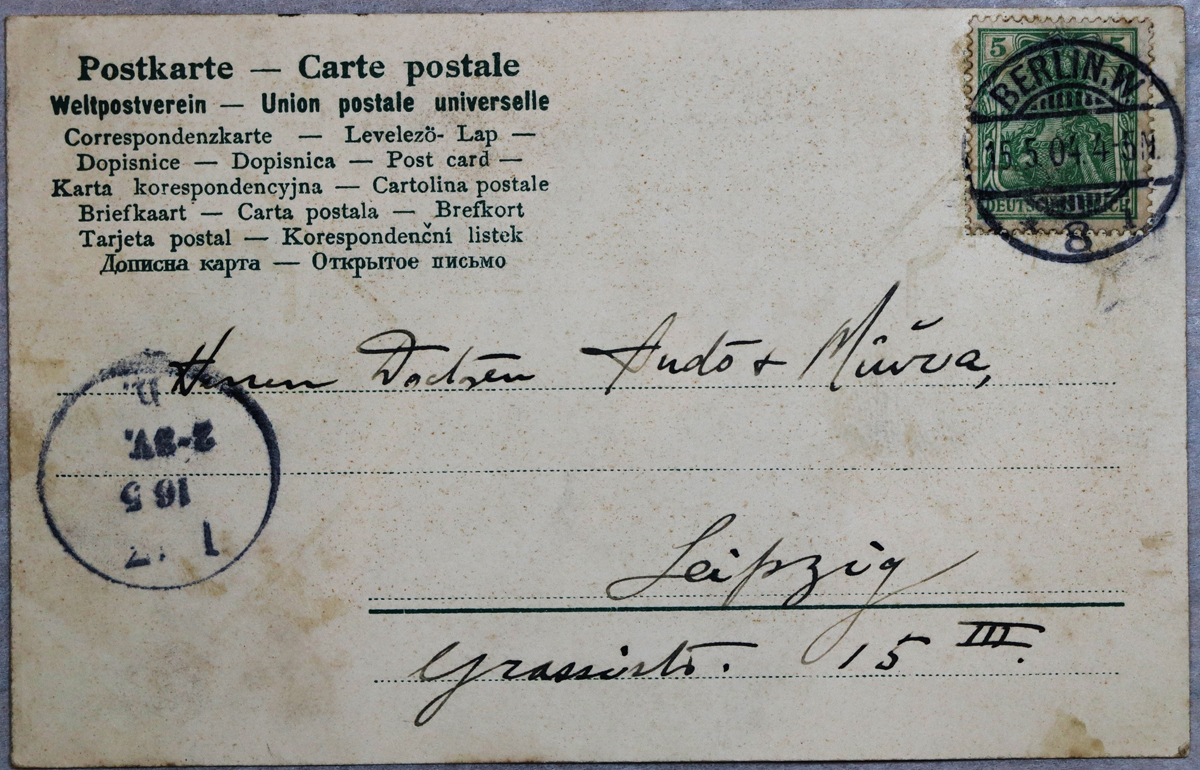 Postkarte — Carte postale
Weltpostverein — Union postale universelle
Correspondenzkarte — Levelezö- Lap —
Dopisnice — Dopisnica — Post card —
Karta korespondencyjna — Cartolina postale
Briefkaart — Carta postala — Brefkort
Tarjeta postal — Korespondenčni listek
Дописна карта — Открытое письмо
5 5
BERLIN. W
15.5 04 4-5N.
DEUTSCHES REICH
8
Herren Doctoren Andō + Miūra,
2-3V.
16 5
Leipzig
Grassistr. 15 III.